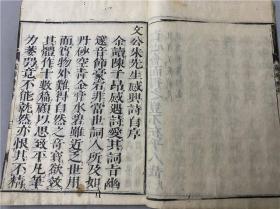 文公朱先生感興詩自序
余讀陳子昂感遇詩愛其詞旨幽
邃音節豪宕非當世詞人所及如
丹砂空青金膏水碧雖近乏世用
而實物外難得自然之奇寳欲效
其體作十數篇顧以思致不凡筆
力萎弱竟不能就然亦恨其不精